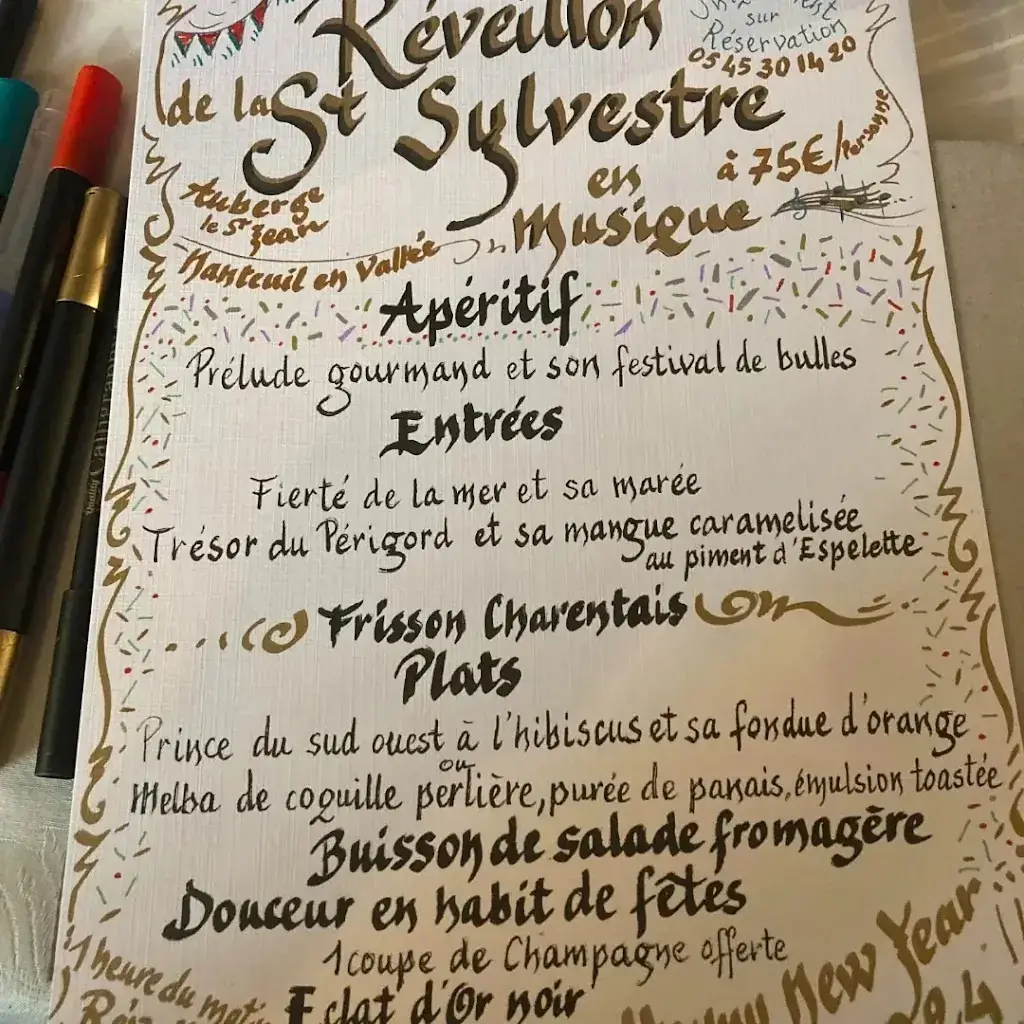 Réveillon
sur
Réservation
05 45 30 14 20
de la St Sylvestre
à 75€/Personne
en
Musique
Auberge
le St Jean
Nanteuil en Vallée
Apéritif
Prélude gourmand et son festival de bulles
Entrées
Fierté de la mer et sa marée
Trésor du Périgord et sa mangue caramelisée
au piment d'Espelette
Frisson Charentais
Plats
Prince du sud ouest à l'hibiscus et sa fondue d'orange
ou
Melba de coquille perlière, purée de panais, émulsion toastée
Buisson de salade fromagère
Douceur en habit de fêtes
1 coupe de Champagne offerte
1 heure du mat
Eclat d'Or noir
New Year